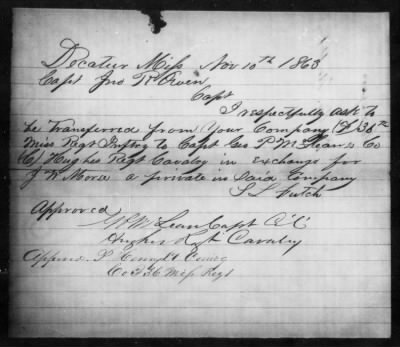 Decatur Miss Nov 10th 1863
Capt Jno R Owen
Capt
I respectfully ask to
be transferred from your Company (F) 36th
Miss Regt Inftry to Capt Geo P McLean's Co
Hughes Regt Cavalry in exchange for
J W Morse a private in Said Company
S L Futch
Approved
McLean Capt
Hughes Regt Cavalry
Approved
Co F 36 Miss Regt